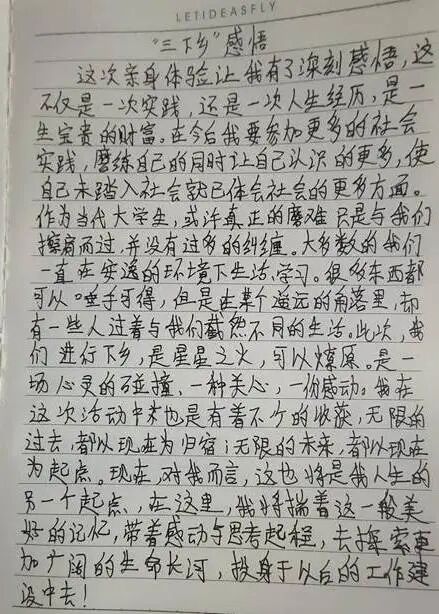 LETIDEASFLY
"三下乡"感悟
这次亲身体验让我有了深刻感悟,这
不仅是一次实践,还是一次人生经历,是一
生宝贵的财富。在今后我要参加更多的社会
实践,磨练自己的同时让自己认识的更多,使
自己未踏入社会就已体会社会的更多方面。
作为当代大学生,或许真正的磨难只是与我们
擦肩而过,并没有过多的纠缠。大多数的我们
一直在安逸的环境下生活,学习。很多东西都
可以唾手可得,但是在某个遥远的角落里,却
有一些人过着与我们截然不同的生活。此次,我
们进行下乡,是星星之火,可以燎原。是一
场心灵的碰撞,一种关心,一份感动。我在
这次活动中来也是有着不个的收获,无限的
过去,都以现在为归宿;无限的未来,都以现在
为起点。现在,对我而言,这也将是我人生的
另一个起点,在这里,我将揣着这一般美
好的记忆,带着感动与思考起程,去探索更
加广阔的生命长河,投身于以后的工作建
设中去!